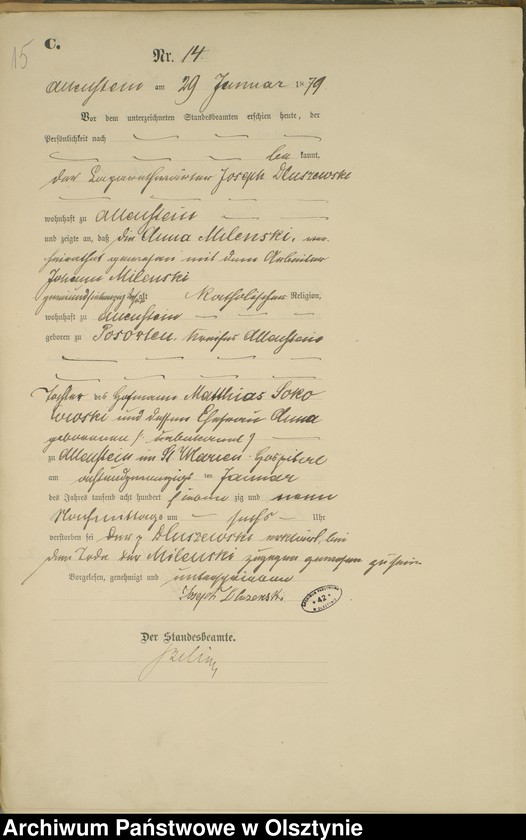 15
C.
Nr. 14
Allenstein am 29 Januar 1879
Vor dem unterzeichneten Standesbeamten erschien heute, der
Persönlichkeit nach
be kannt,
der Lazarethwärter Joseph Dluszewski
wohnhaft zu Allenstein
und zeigte an, daß die Anna Milenski, ver-
heirathet gewesen mit dem Arbeiter
Johann Milenski
alt Katholischer Religion,
wohnhaft zu Allenstein
geboren zu Posorten, Kreises Allenstein
Tochter des Hofmann Matthias Soko
lowski und dessen Ehefrau Anna
geborenen (: unbekannt :)
zu Allenstein im St Marien-Hospital
am achtundzwanzigs ten Januar
des Jahres tausend acht hundert sieben zig und neun
Nachmittags um sechs Uhr
verstorben sei Der p Dluszewski erklärt, bei
dem Tode der Milenski zugegen gewesen zu sein
Vorgelesen, genehmigt und unterschrieben
Joseph
42
Der Standesbeamte.
Archiwum Państwowe w Olsztynie